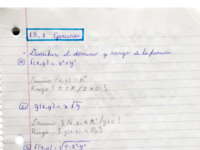 13.1 Ejercicios
• Describir el dominio y rango de la función
A) f(x,y) = x² + y²
Dominio f(x,y) = R²
Rango { z ∈ R / z ≥ 0 }
B) g(x,y) = x √y
Dominio { (x,y) ∈ R² / y ≥ 0 }
Rango
C) f(x,y) = √4-x²-y²